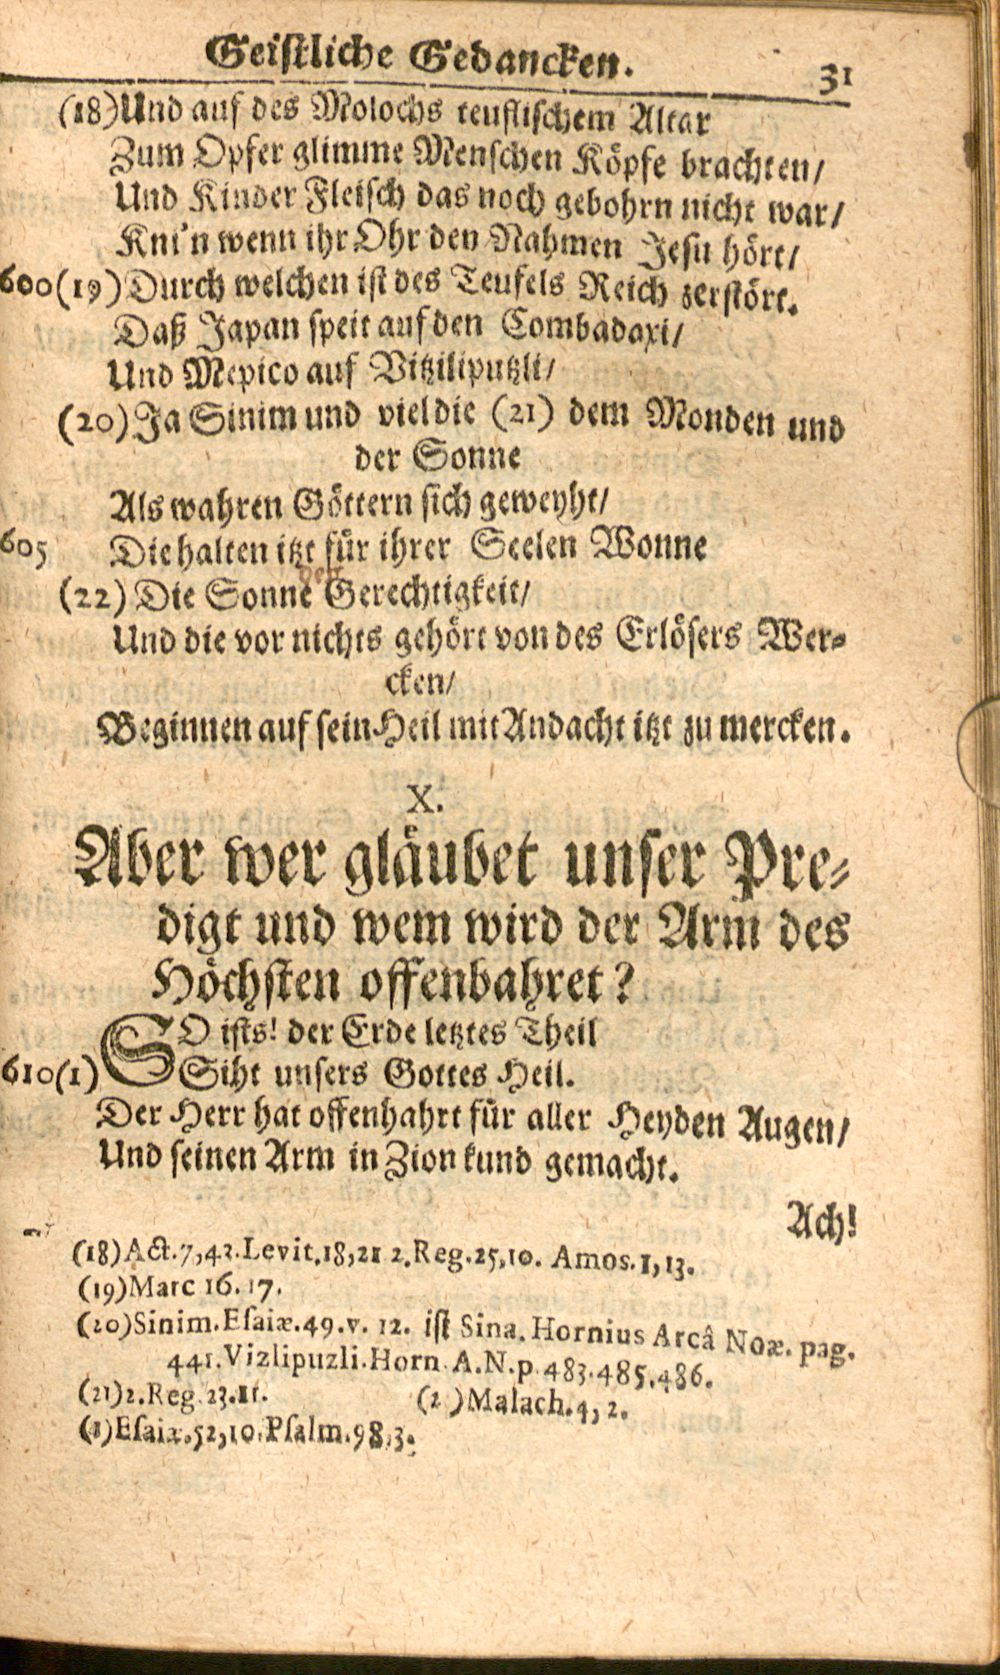 Geistliche Gedancken. 31
(18)Und auf des Molochs teuflischem Altar
Zum Opfer glimme Menschen Köpfe brachten/
Und Kinder Fleisch das noch gebohrn nicht war/
Kni'n wenn ihr Ohr den Nahmen Jesu hört/
600(19)Durch welchen ist des Teufels Reich zerstört.
Daß Japan speit auf den Combadaxi/
Und Mepico auf Vitziliputzli/
(20)Ja Sinim und viel die (21) dem Monden und
der Sonne
Als wahren Göttern sich geweyht/
605 Die halten itzt für ihrer Seelen Wonne
der
(22) Die Sonne Gerechtigkeit/
Und die vor nichts gehört von des Erlösers Wer-
cken/
Beginnen auf sein Heil mit Andacht itzt zu mercken.
X.
Aber wer gläubet unser Pre-
digt und wem wird der Arm des
Höchsten offenbahret?
SO ists! der Erde letztes Theil
610(1) Siht unsers Gottes Heil.
Der Herr hat offenhahrt für aller Heyden Augen/
Und seinen Arm in Zion kund gemacht.
Ach!
(18)Act.7,43.Levit.18,21 2.Reg.25,10. Amos.1,13.
(19)Marc 16.17.
(20)Sinim.Esaiæ.49.v. 12. ist Sina. Hornius Arcâ Noæ. pag.
441.Vizlipuzli.Horn. A.N.p 483.485.486.
(21)2.Reg 23.11. (2 )Malach.4, 2.
(1)Esaiæ.52,10.Psalm.98,3.